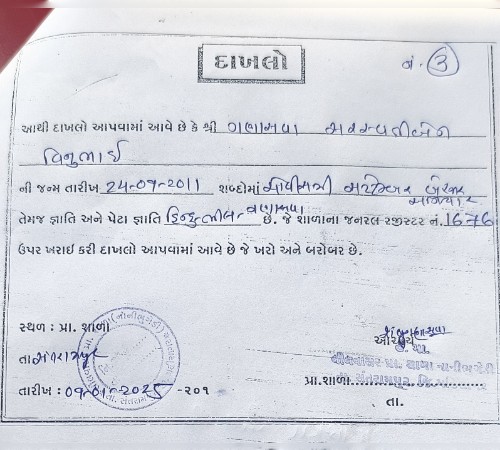 દાખલો
નં. ③
આથી દાખલો આપવામાં આવે છે કે શ્રી ગણાસવા સરસ્વતીબેન
વિનુભાઈ
ની જન્મ તારીખ 24-09-2011 શબ્દોમાં
તેમજ જ્ઞાતિ અને પેટા જ્ઞાતિ હિન્દુ ભીલ- ગણાસવા છે. જે શાળાના જનરલ રજીસ્ટર નં. 1676
ઉપર ખરાઈ કરી દાખલો આપવામાં આવે છે જે ખરો અને બરોબર છે.
સ્થળ : પ્રા. શાળા
તા.
તારીખ : 09-01-2025 -૨૦૧
આચાર્ય
પ્રા.શાળા
તા.